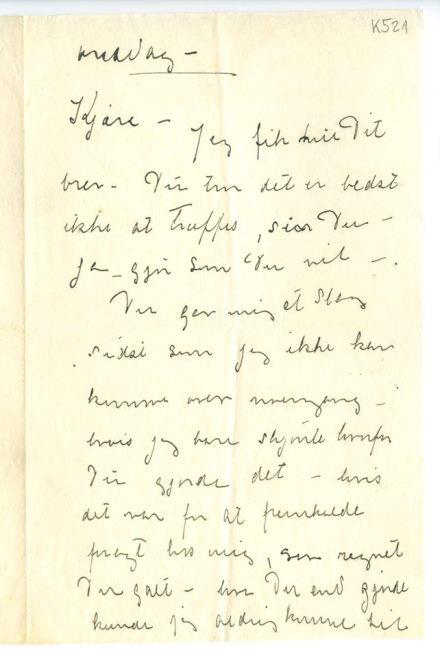 K521
onsdag –
Kjære – Jeg fik Dit
brev – Du tror det er bedst
ikke at træffes, sier Du –
Ja – gjør som Du vil –.
Du gav mig et slag
sidst som jeg ikke kan
komme over noengang –
hvis jeg bare skjønte hvorfor
Du gjorde det – hvis
det var for at fremkalde
hos mig, regnet
Du galt – hva Du end gjorde
kunde jeg aldrig komme til